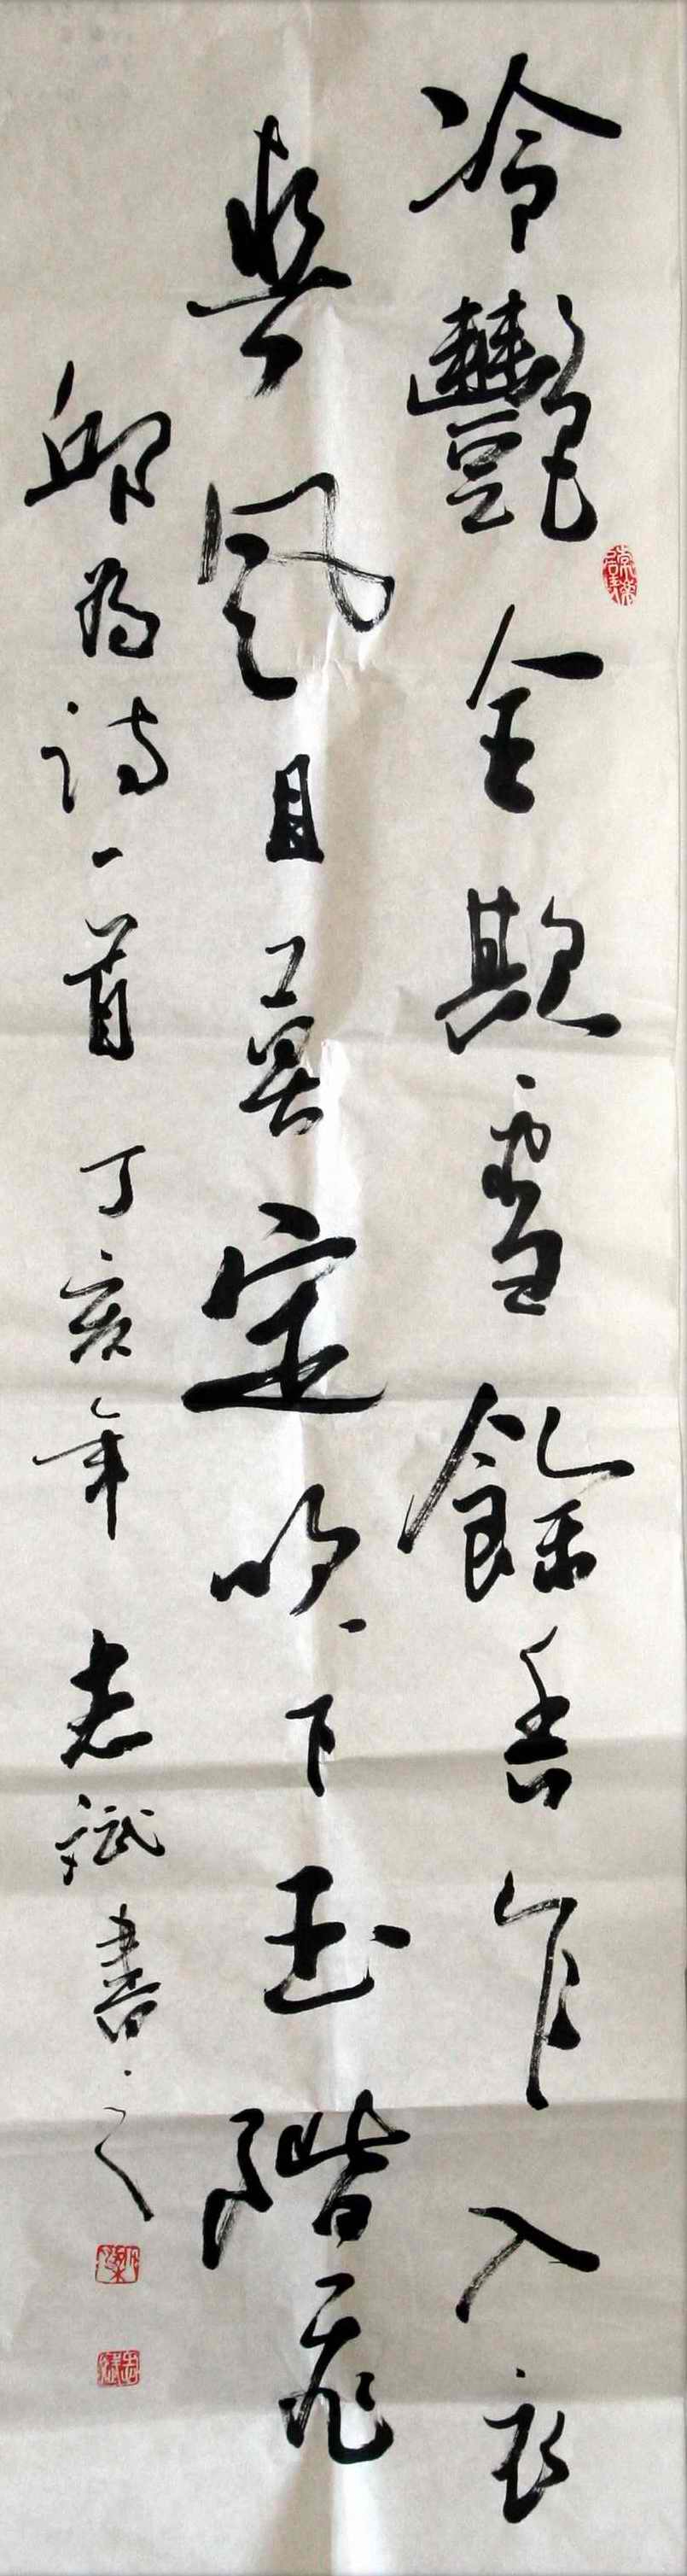 冷艷全欺雪餘香乍入衣
春風且莫定吹向玉階飛
邱為詩一首 丁亥年 志斌書之